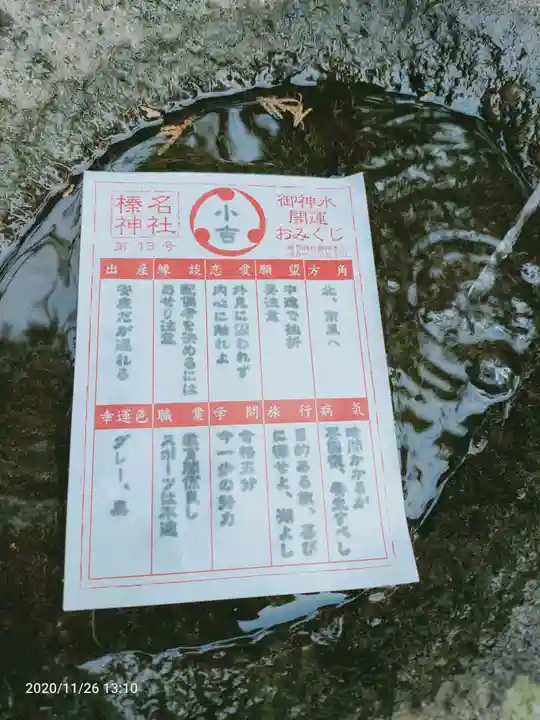 榛名
神社
第13号
小
吉
御神水
開運
おみくじ
方角
北、南東へ
願望
中途で挫折
要注意
恋愛
外見に囚われず
内心に触れよ
縁談
配偶者を決めるには
あせり注意
出産
安産だが遅れる
病気
時間かかるが
養生すべし
旅行
目的ある旅、喜び
に溢せよ、湖よし
学問
合格五分
今一歩の努力
職業
教育関係良し
スポーツは不適
幸運色
グレー、黒
2020/11/26 13:10